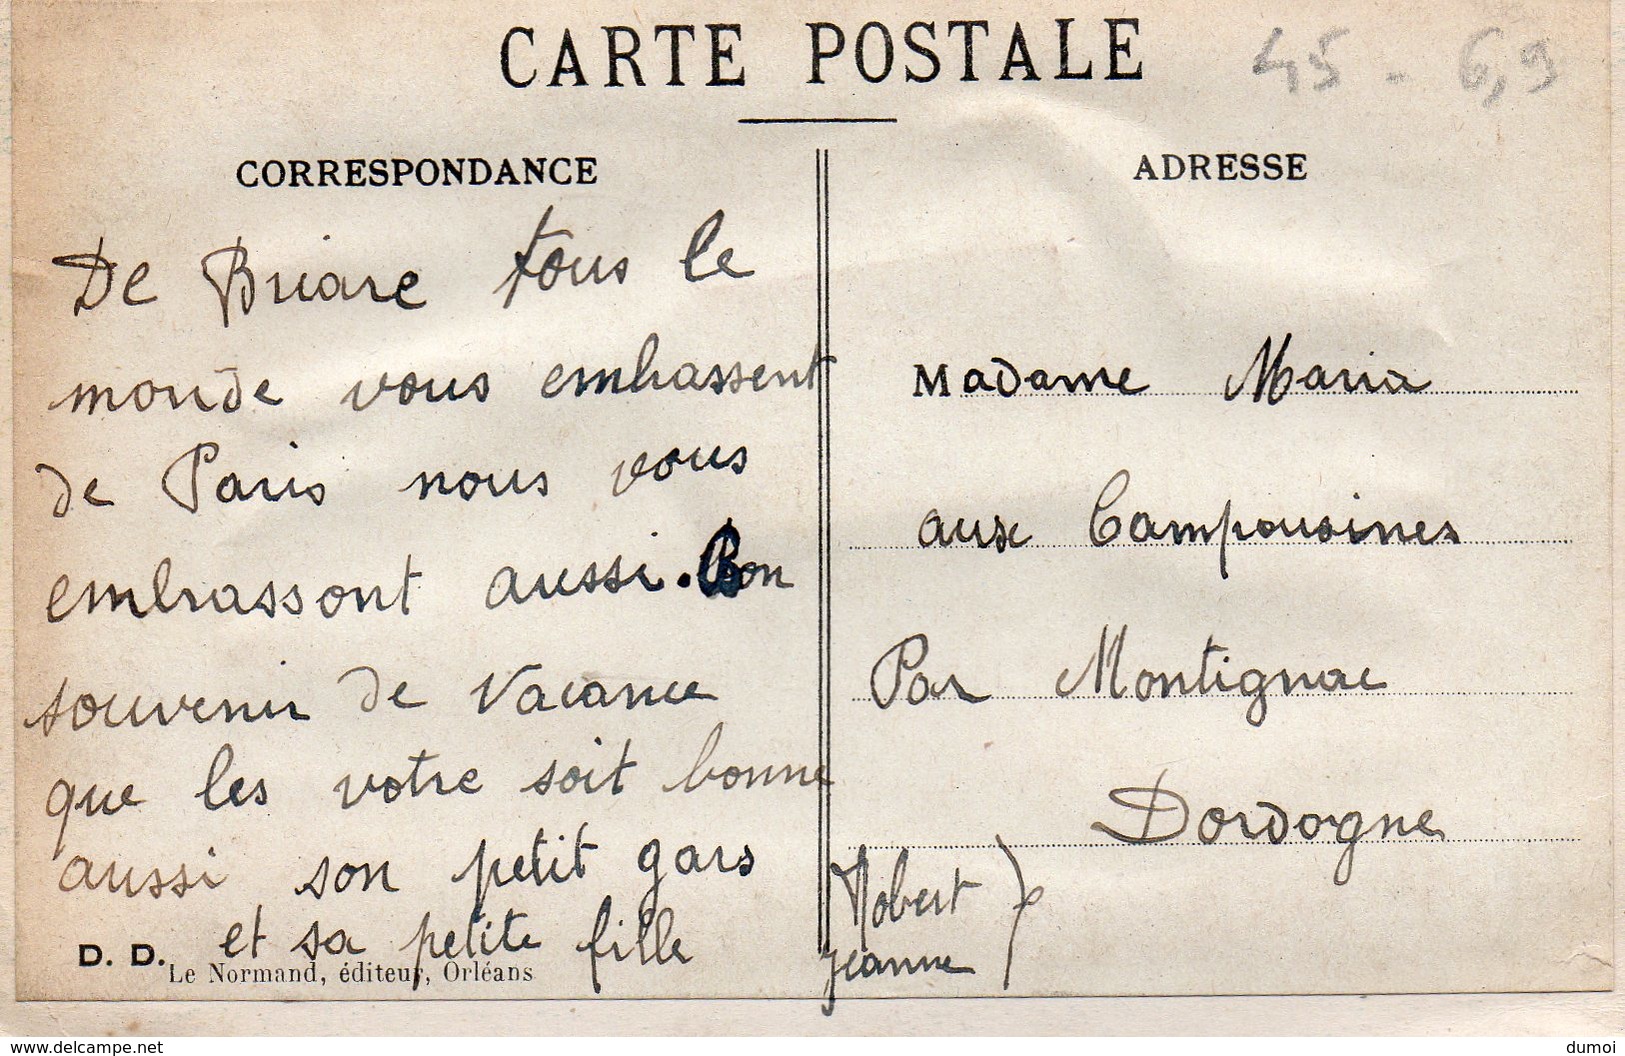 CARTE POSTALE
45 - 6,9
CORRESPONDANCE
De Briare tous le
monde vous embassent
de Paris nous vous
embrassont aussi. Bon
souvenir de Vacance
que les votre soit bonne
aussi son petit gars
et sa petite fille
D. D.
Le Normand, éditeur, Orléans
Robert
Jeanne
ADRESSE
Madame Maria
aux Campousines
Par Montignac
Dordogne
www.delcampe.net
dumoi